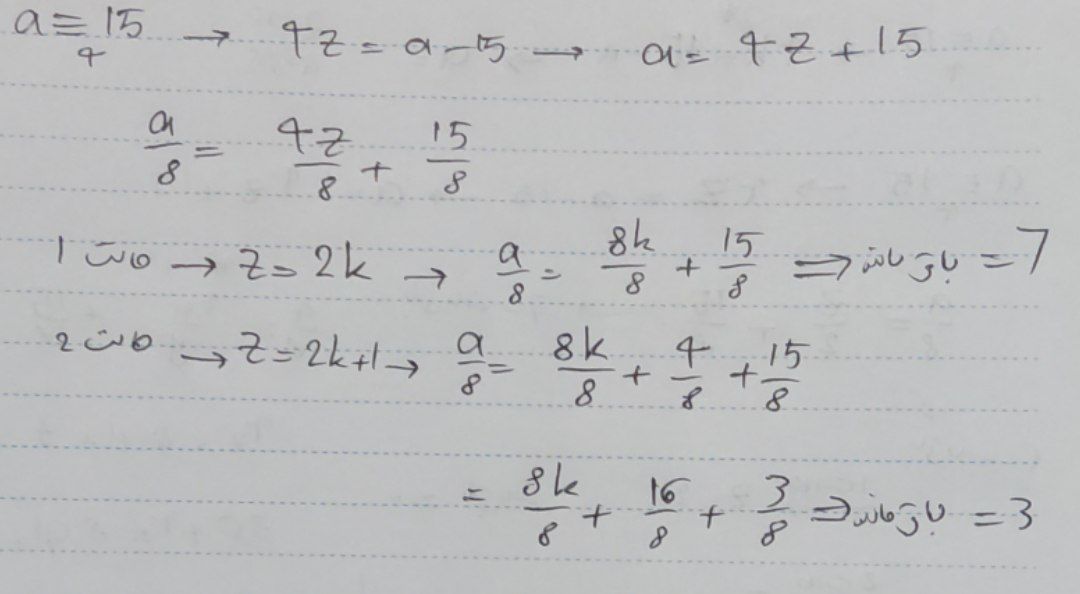 a ≡ 15 → 4z = a - 15 → a = 4z + 15
4
a/8 = 4z/8 + 15/8
حالت 1 → z = 2k → a/8 = 8k/8 + 15/8 ⇒ باقی مانده = 7
حالت 2 → z = 2k+1 → a/8 = 8k/8 + 4/8 + 15/8
= 8k/8 + 16/8 + 3/8 ⇒ باقی مانده = 3